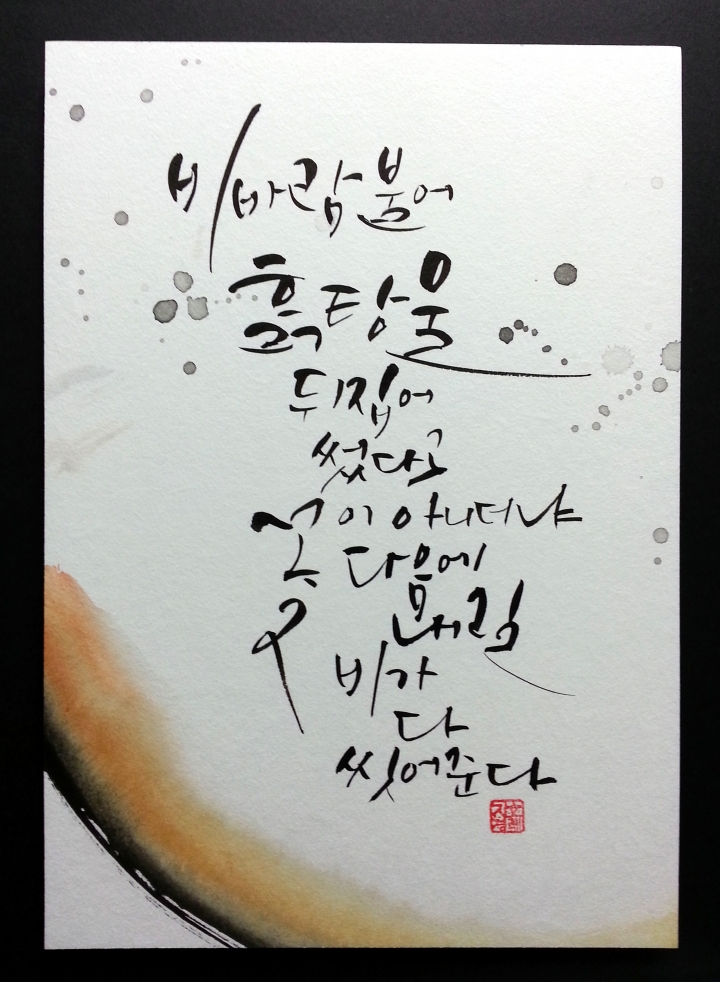 비바람 불어
흙탕물
뒤집어
썼다고
꽃이 아니더냐
다음에
내릴
비가
다
씻어준다